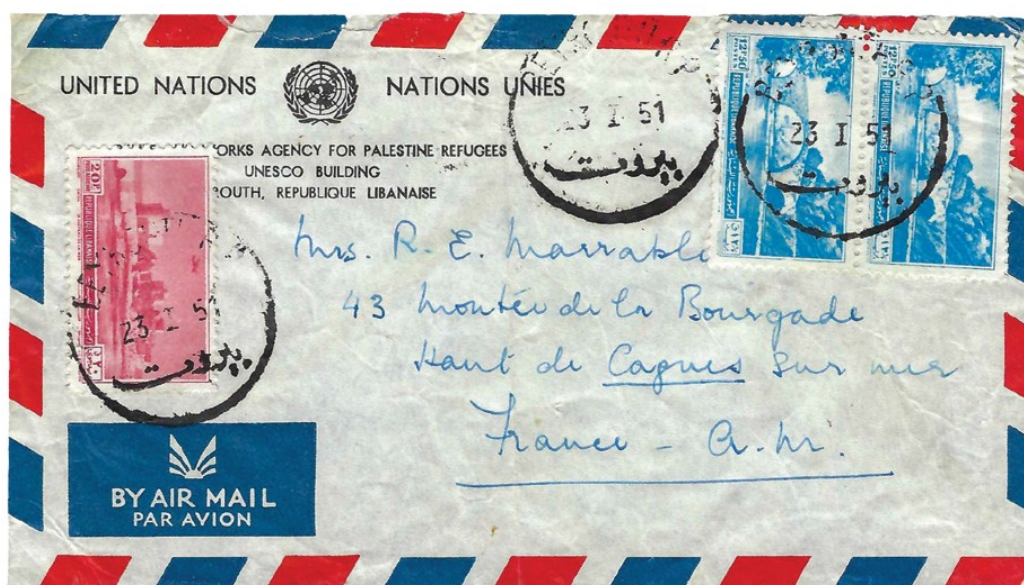 UNITED NATIONS NATIONS UNIES
WORKS AGENCY FOR PALESTINE REFUGEES
UNESCO BUILDING
OUTH, REPUBLIQUE LIBANAISE
23 I 51
بيروت
12P50
REPUBLIQUE LIBANAISE
12P50
REPUBLIQUE LIBANAISE
23 I 51
بيروت
20P
REPUBLIQUE LIBANAISE
23 I 51
بيروت
Mrs. R. E. Marrabl
43 Montée de la Bourgade
Haut de Cagnes sur mer
France - A.M.
BY AIR MAIL
PAR AVION